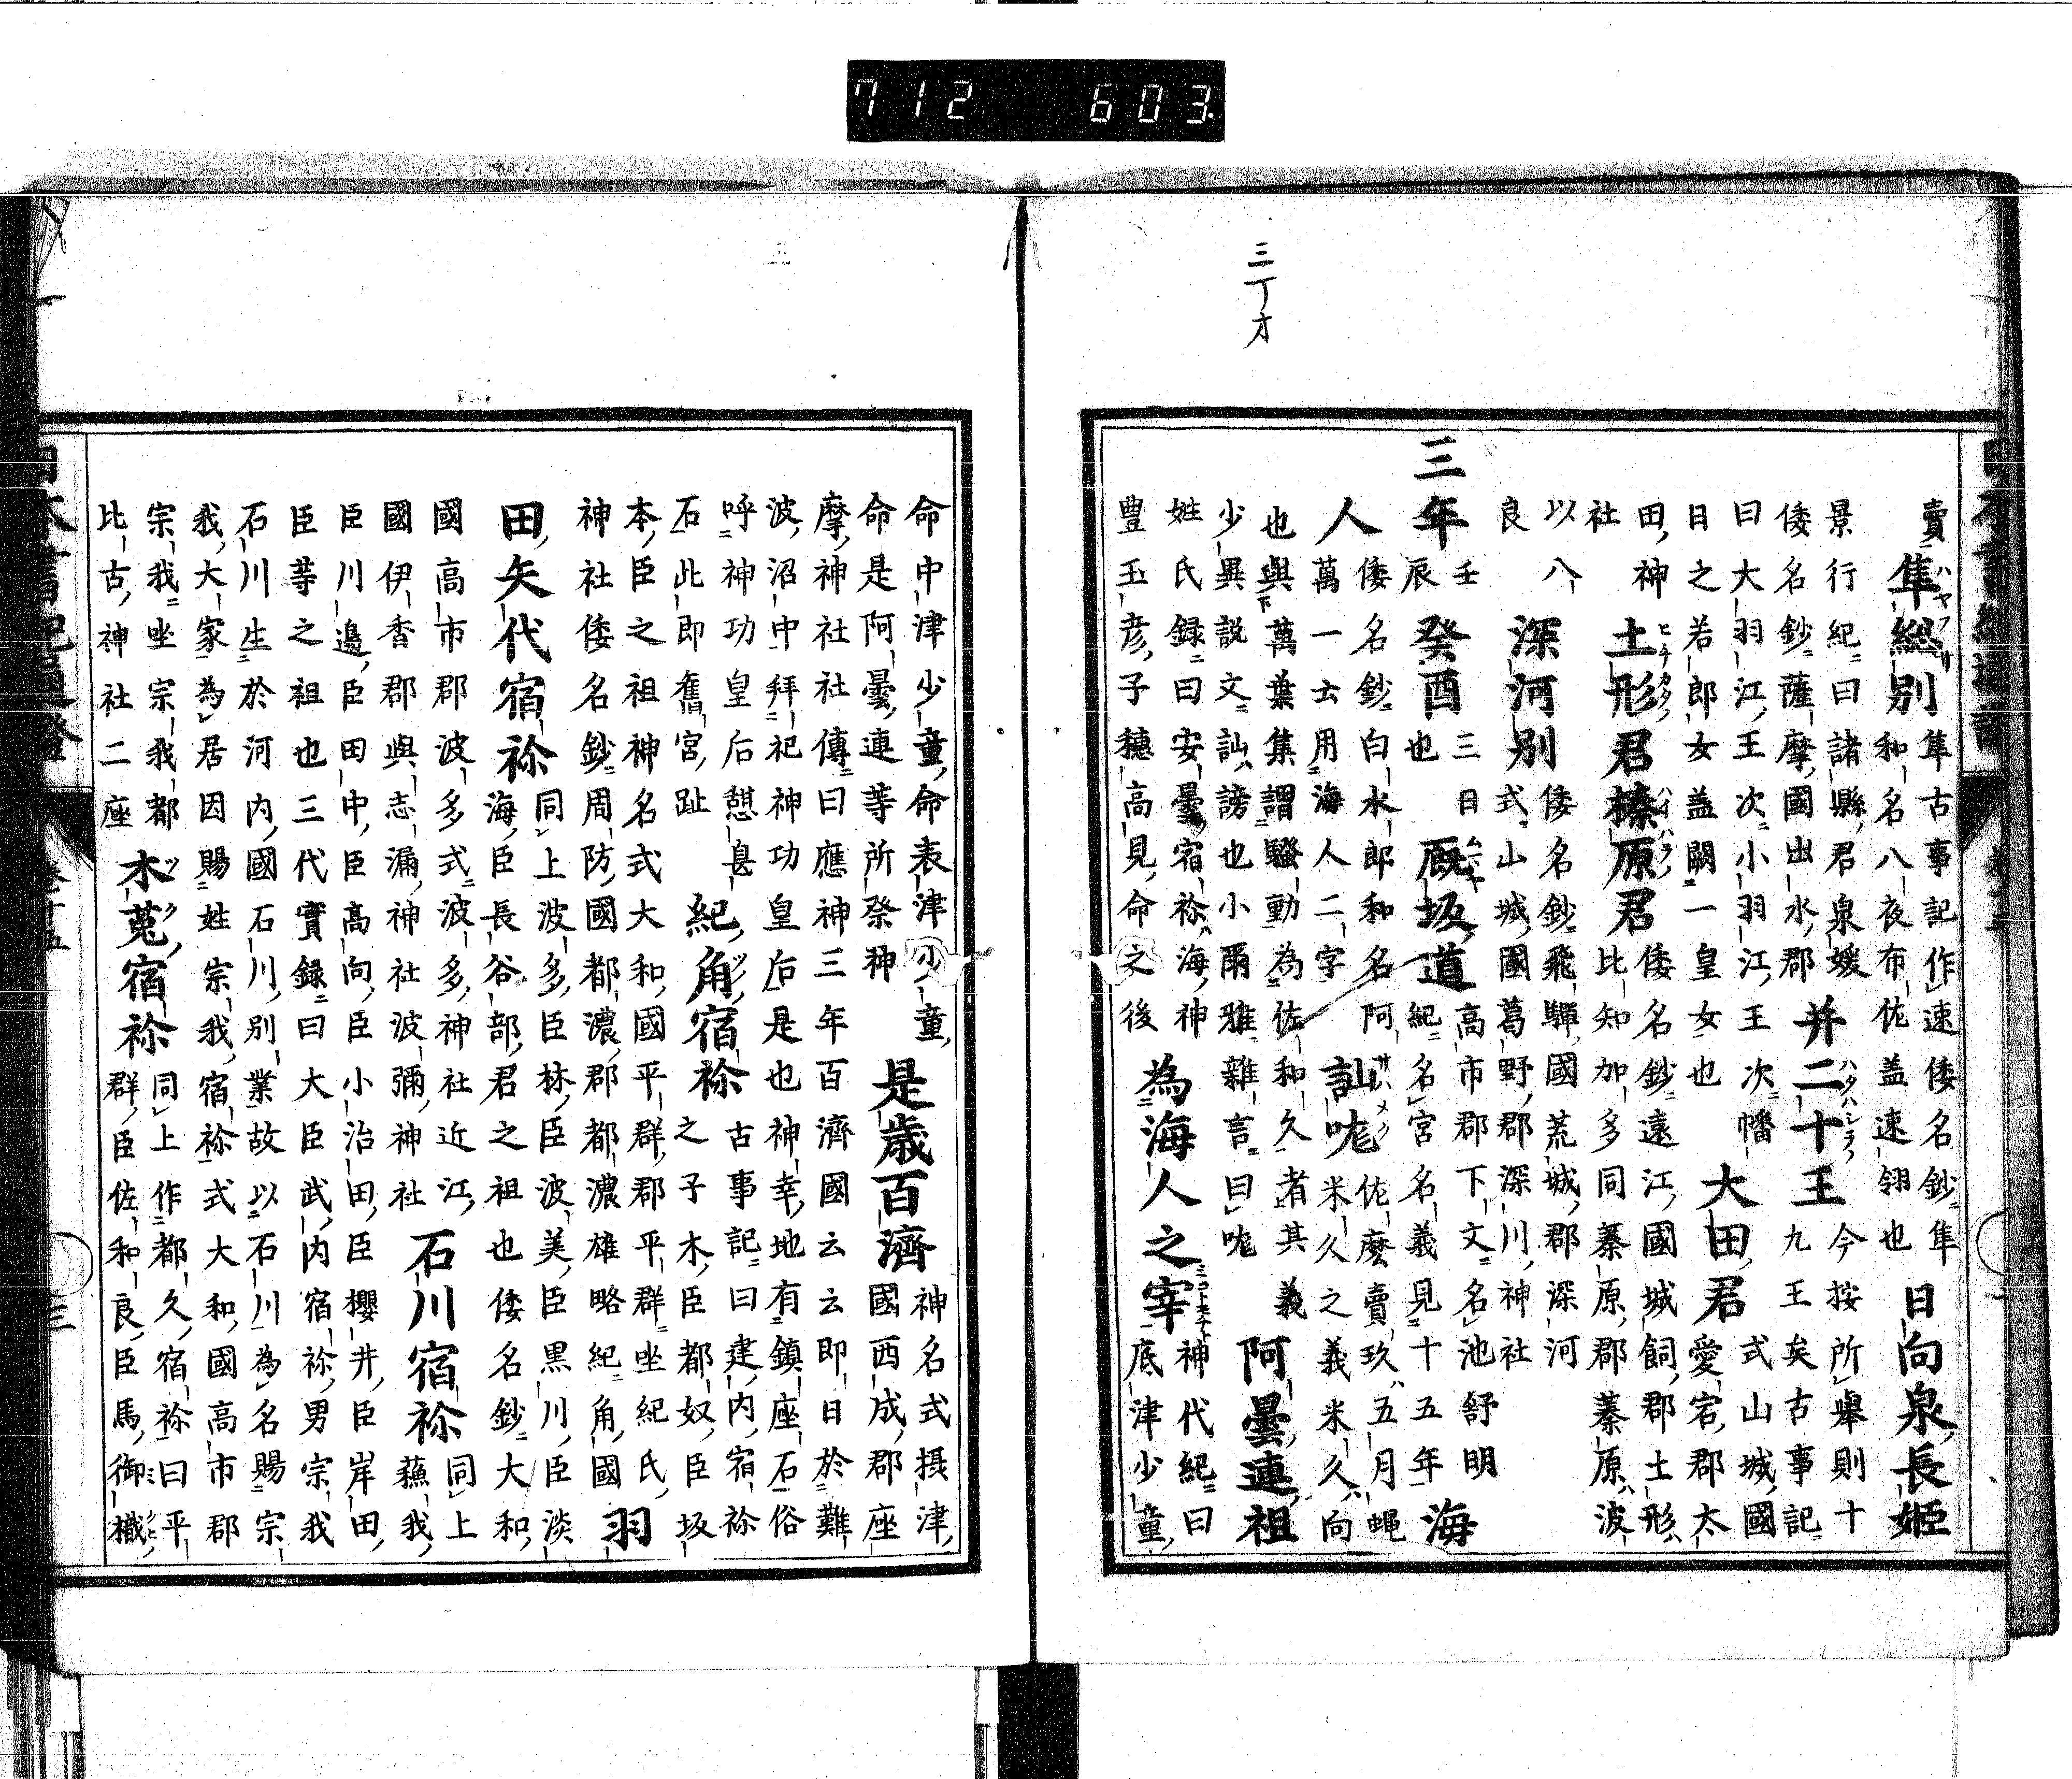 712 603
三丁才
賣 隼総別 隼古事記作速倭名鈔隼
和名八夜布佐盖速翎也 日向泉長姫
景行紀曰諸縣君泉媛
倭名鈔薩摩國出水郡 并二十王 今按所舉則十
九王矣古事記
曰大羽江王次小羽江王次幡
日之若郎女盖闕一皇女也 大田君 式山城國
愛宕郡太
田神
社 土形君榛原君 倭名鈔遠江國城飼郡土形
比知加多同蓁原郡蓁原波
以八
良 深河別 倭名鈔飛騨國荒城郡深河
式山城國葛野郡深川神社
三年 壬
辰 癸酉 三日
也 厩坂道 高市郡下文名池舒明
紀名宮名義見十五年 海
人 倭名鈔白水郎和名阿
萬一云用海人二字 訕哤 佐麽賣玖五月蝿
米久之義米久向
也與萬葉集謂騒動為佐和久者其義
少異説文訕謗也小爾雅雜言曰哤 阿曇連祖
姓氏録曰安曇宿祢海神
豊玉彦子穗高見命之後 為海人之宰 神代紀曰
底津少童
命中津少童命表津少童
命是阿曇連等所祭神 是歳百濟 神名式摂津
國西成郡座
摩神社社傳曰應神三年百濟國云云即日於難
波沼中拜祀神功皇后是也神幸地有鎮座石俗
呼神功皇后憇息
石此即舊宮趾 紀角宿祢 古事記曰建内宿祢
之子木臣都奴臣坂
本臣之祖神名式大和國平群郡平群坐紀氏
神社倭名鈔周防國都濃郡都濃雄略紀角國 羽
田矢代宿祢 同上波多臣林臣波美臣黒川臣淡
海臣長谷部君之祖也倭名鈔大和
國高市郡波多式波多神社近江
國伊香郡與志漏神社波彌神社 石川宿祢 同上
蘓我
臣川邉臣田中臣高向臣小治田臣櫻井臣岸田
臣等之祖也三代實録曰大臣武内宿祢男宗我
石川生於河内國石川別業故以石川為名賜宗
我大家為居因賜姓宗我宿祢式大和國高市郡
宗我坐宗我都
比古神社二座 木菟宿祢 同上作都久宿祢曰平
群臣佐和良臣馬御樴